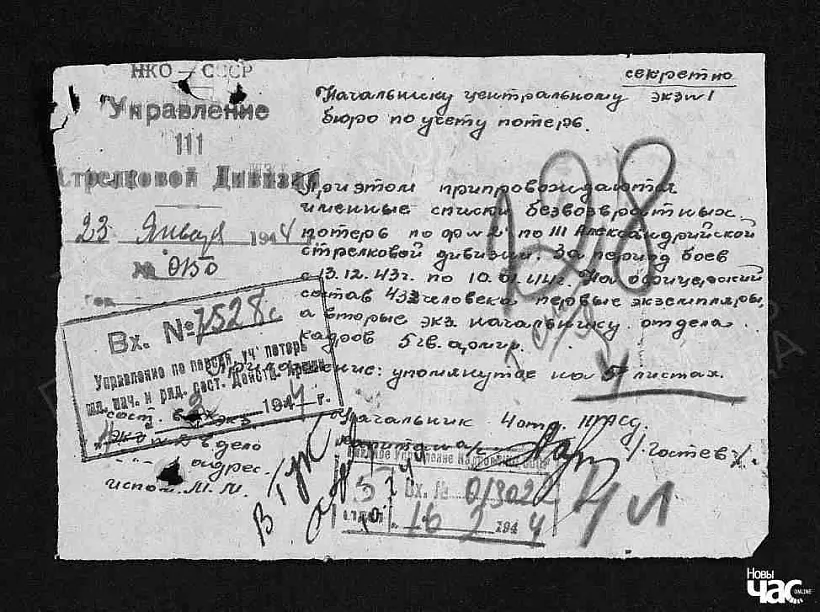 НКО – СССР
Управление
111
Стрелковой Дивизии
23 Января 1944
№ 0150
секретно
экз № 1
Начальнику центральному
бюро по учету потерь.
При этом припровождаются
именные списки безвозвратных
потерь по ф № 2 по 111 Александрийской
стрелковой дивизии. За период боев
с 13.12.43г. по 10.01.44г. На офицерский
состав 43 человека первые экземпляры,
а вторые экз. начальнику отдела
кадров 5 гв. армии.
Приложение: упомянутое на 5 листах.
4
128
Вх. № 7528с
Управление по персон. уч. потерь
мл. нач. и ряд. сост. Действ. Армии
1944 г.
Начальник 4 отд.
капитан
/Гостев/.
в дело
адрес.
испол. М. М.
В ГУК
Главное Управление Кадров
Вх. № 01302
16 2 1944
4 л
НОВЫ
ЧАС
ONLINE